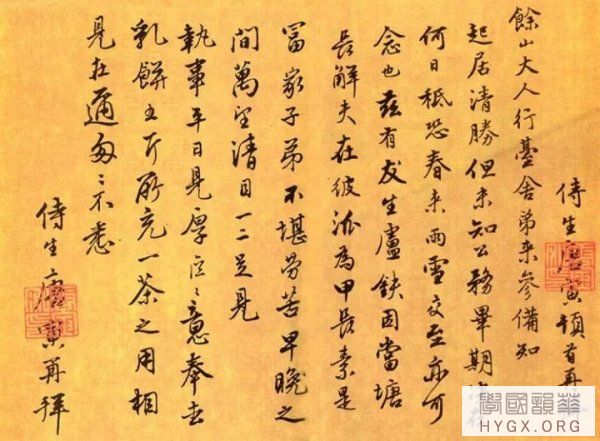 侍生唐寅頓首再
餘山大人行臺舍弟來參備知
起居清勝但未知公務畢期
何日秪恐春來雨雪交至亦可
念也茲有友生盧鈇因當塘
長解夫在彼派為甲長素是
冨家子弟不堪勞苦早晚之
間萬望清目一二足見
執事平日見厚區〻意奉去
乳餅五斤所充一茶之用相
見在邇匆〻不悉
侍生唐寅再拜
學國韻華
HYGX.ORG